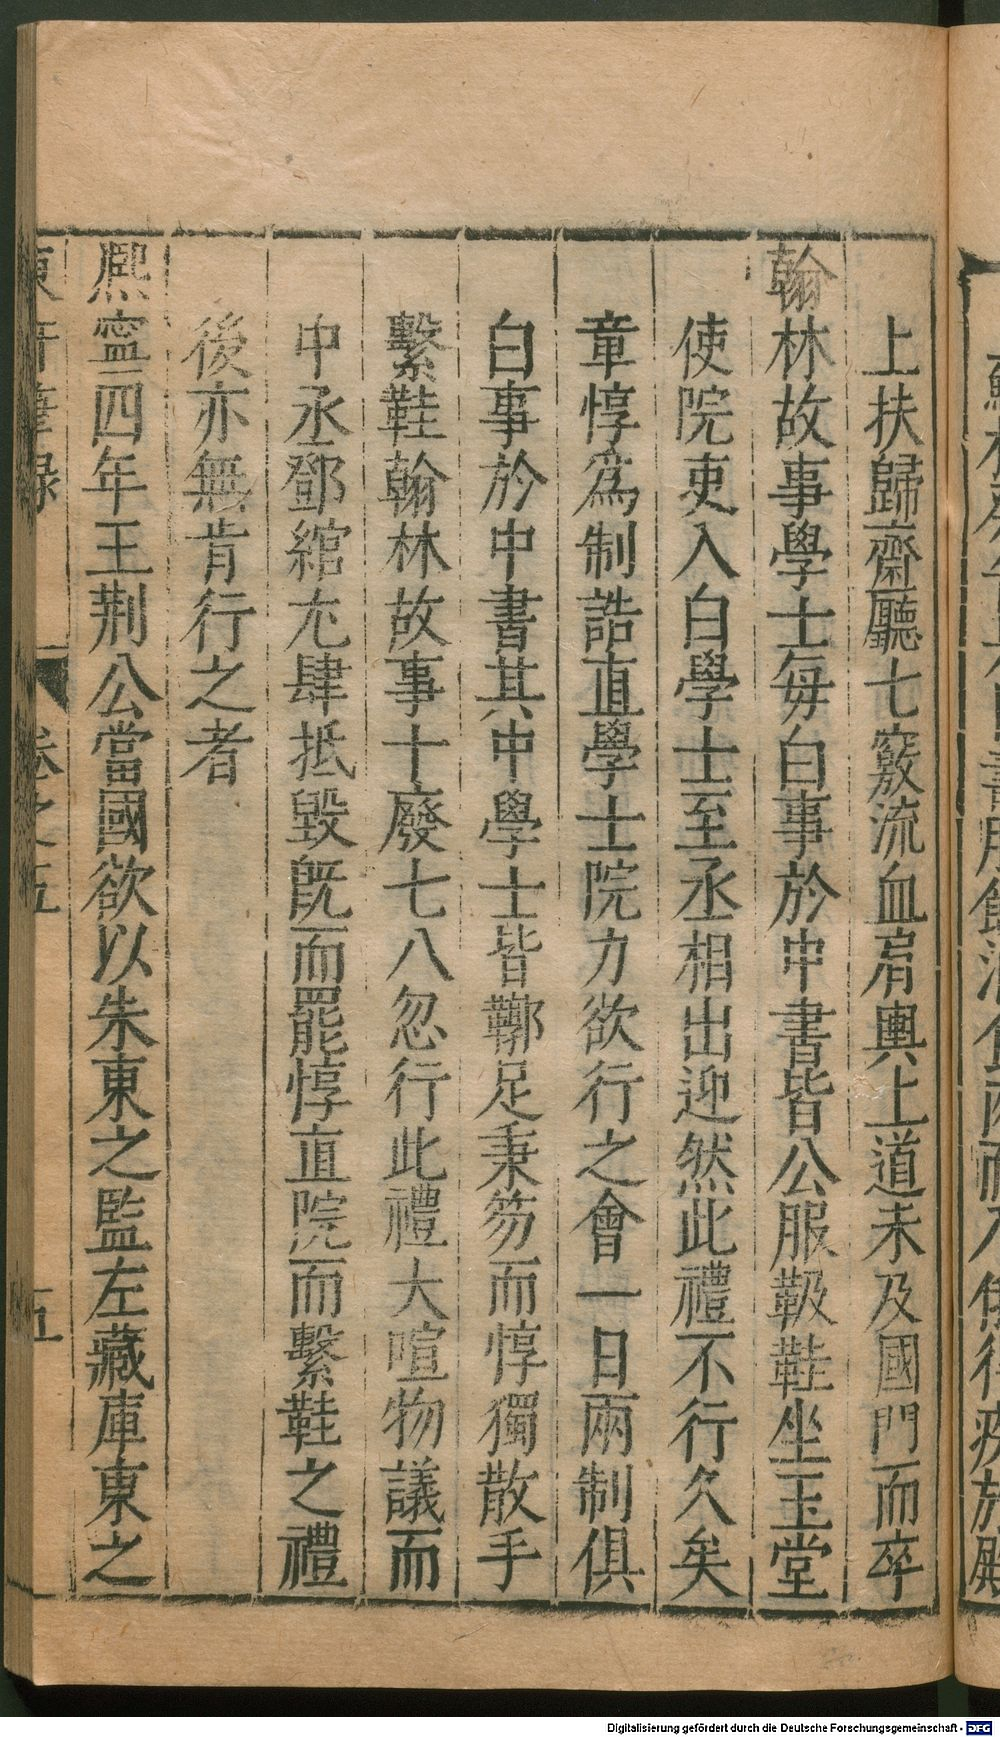 上扶歸齋廳七竅流血肩輿上道未及國門而卒
翰林故事學士每白事於中書皆公服靸鞋坐玉堂
使院吏入白學士至丞相出迎然此禮不行久矣
章惇爲制誥直學士院力欲行之會一日兩制俱
白事於中書其中學士皆鞹足秉笏而惇獨散手
繫鞋翰林故事十廢七八忽行此禮大喧物議而
中丞鄧綰尤肆抵毀旣而罷惇直院而繫鞋之禮
後亦無肯行之者
熙寧四年王荆公當國欲以朱東之監左藏庫東之
東軒筆錄 卷之五 五
Digitalisierung gefördert durch die Deutsche Forschungsgemeinschaft - DFG